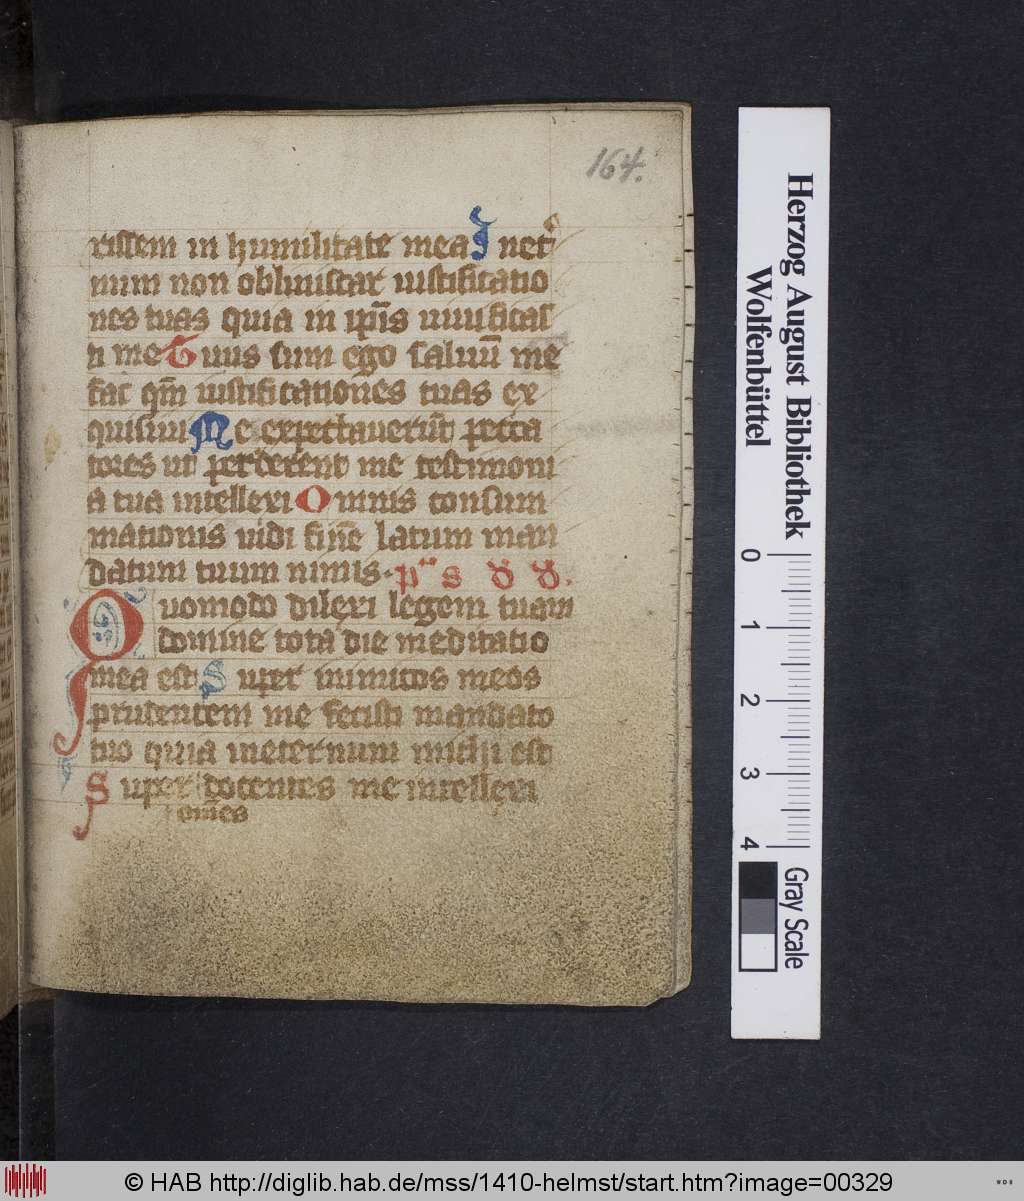 164.
rissem in humilitate mea In eter
num non obliuiscar iustificatio
nes tuas quia in ip̄is uiuificas
ti me Tuus sum ego saluū me
fac qm̄ iustificationes tuas ex
quisiui Me expectauerūt pecca
tores ut perderent me testimoni
a tua intellexi Omnis consum
mationis uidi finē latum man
datum tuum nimis. p s
Quomodo dilexi legem tuam
domine tota die meditatio
mea est Super inimicos meos
prudentem me fecisti mandato
tuo quia ineternum michi est
Super docentes me intellexi
om̄es
Herzog August Bibliothek
Wolfenbüttel
0 1 2 3 4
Gray Scale
© HAB http://diglib.hab.de/mss/1410-helmst/start.htm?image=00329